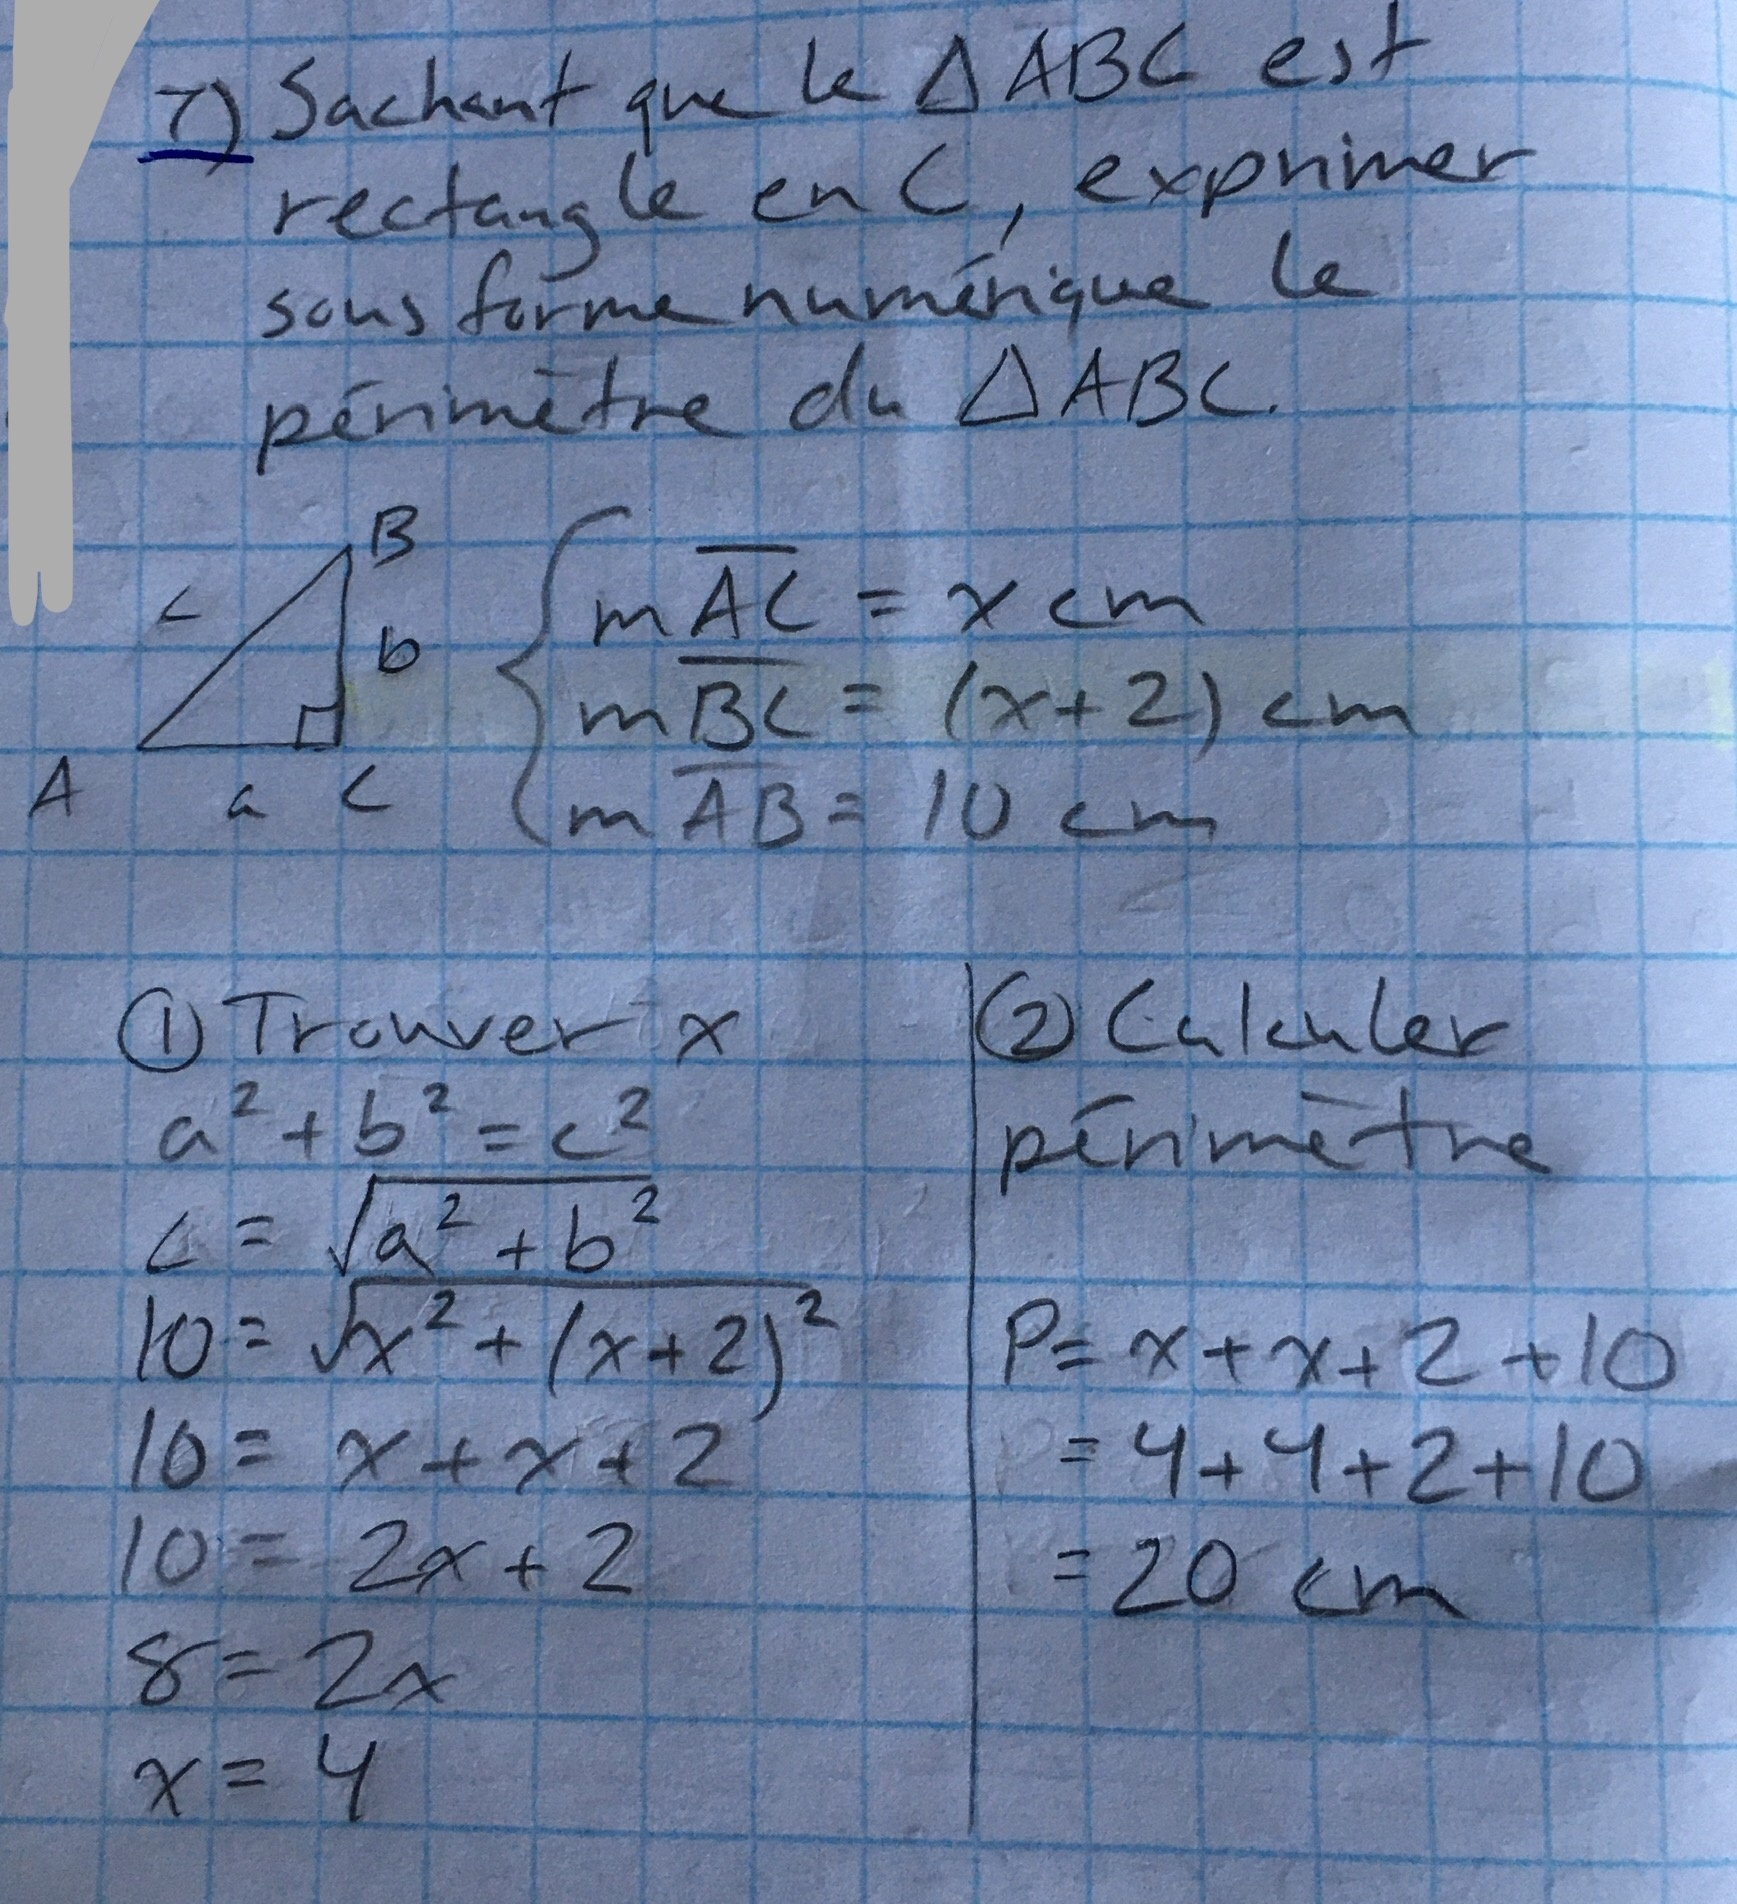 7) Sachant que le △ABC est
rectangle en C, exprimer
sous forme numérique le
périmètre du △ABC.
B
c
b
A
a
C
m\overline{AC} = x cm
m\overline{BC} = (x+2) cm
m\overline{AB} = 10 cm
① Trouver x
a² + b² = c²
c = √(a² + b²)
10 = √(x² + (x+2)²)
10 = x + x + 2
10 = 2x + 2
8 = 2x
x = 4
② Calculer
périmètre
P = x + x + 2 + 10
= 4 + 4 + 2 + 10
= 20 cm